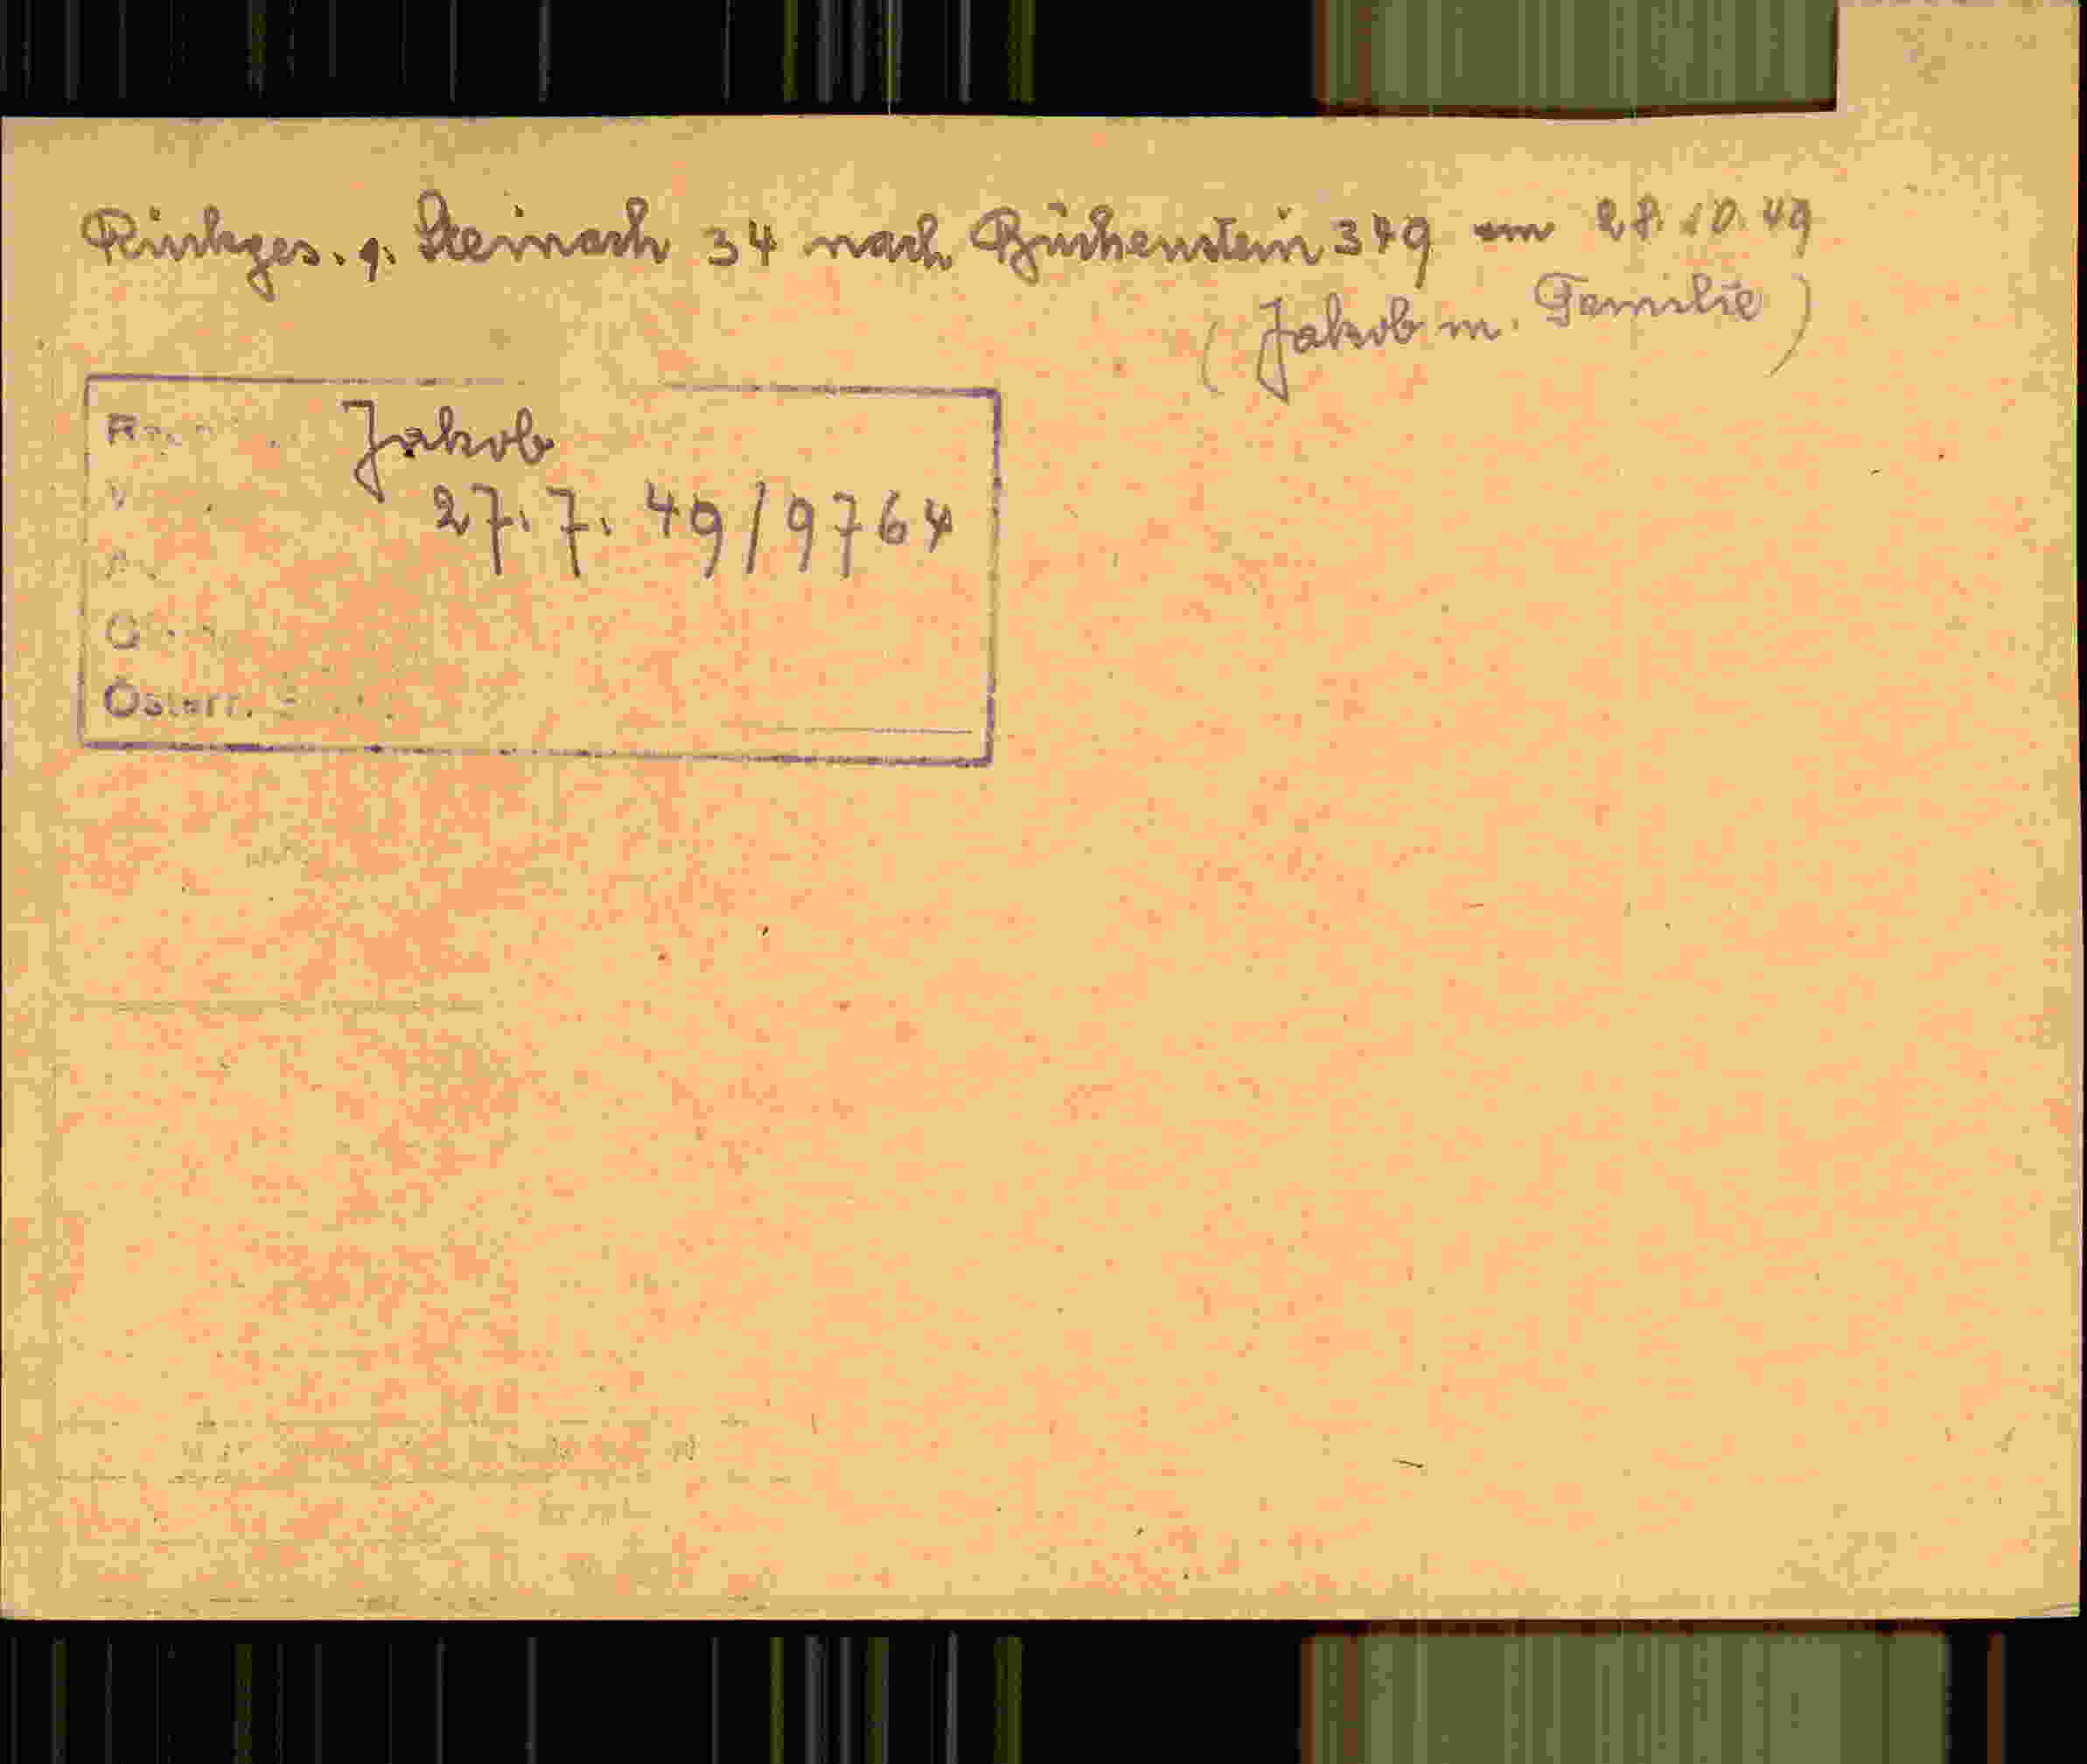 Rückges. g. Steinach 34 nach Büchenstein 349 am 28.10.49
(Jakob m. Familie)
Jakob
27.7.49/9764
Österr.